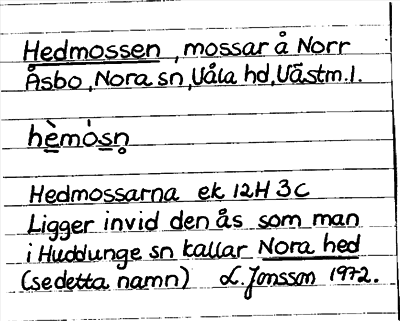 Hedmossen, mossar å Norr
Åsbo, Nora sn, Våla hd, Västm.l.
hèmósn̥
Hedmossarna ek 12H 3C
Ligger invid den ås som man
i Huddunge sn kallar Nora hed
(se detta namn) L. Jonsson 1972.